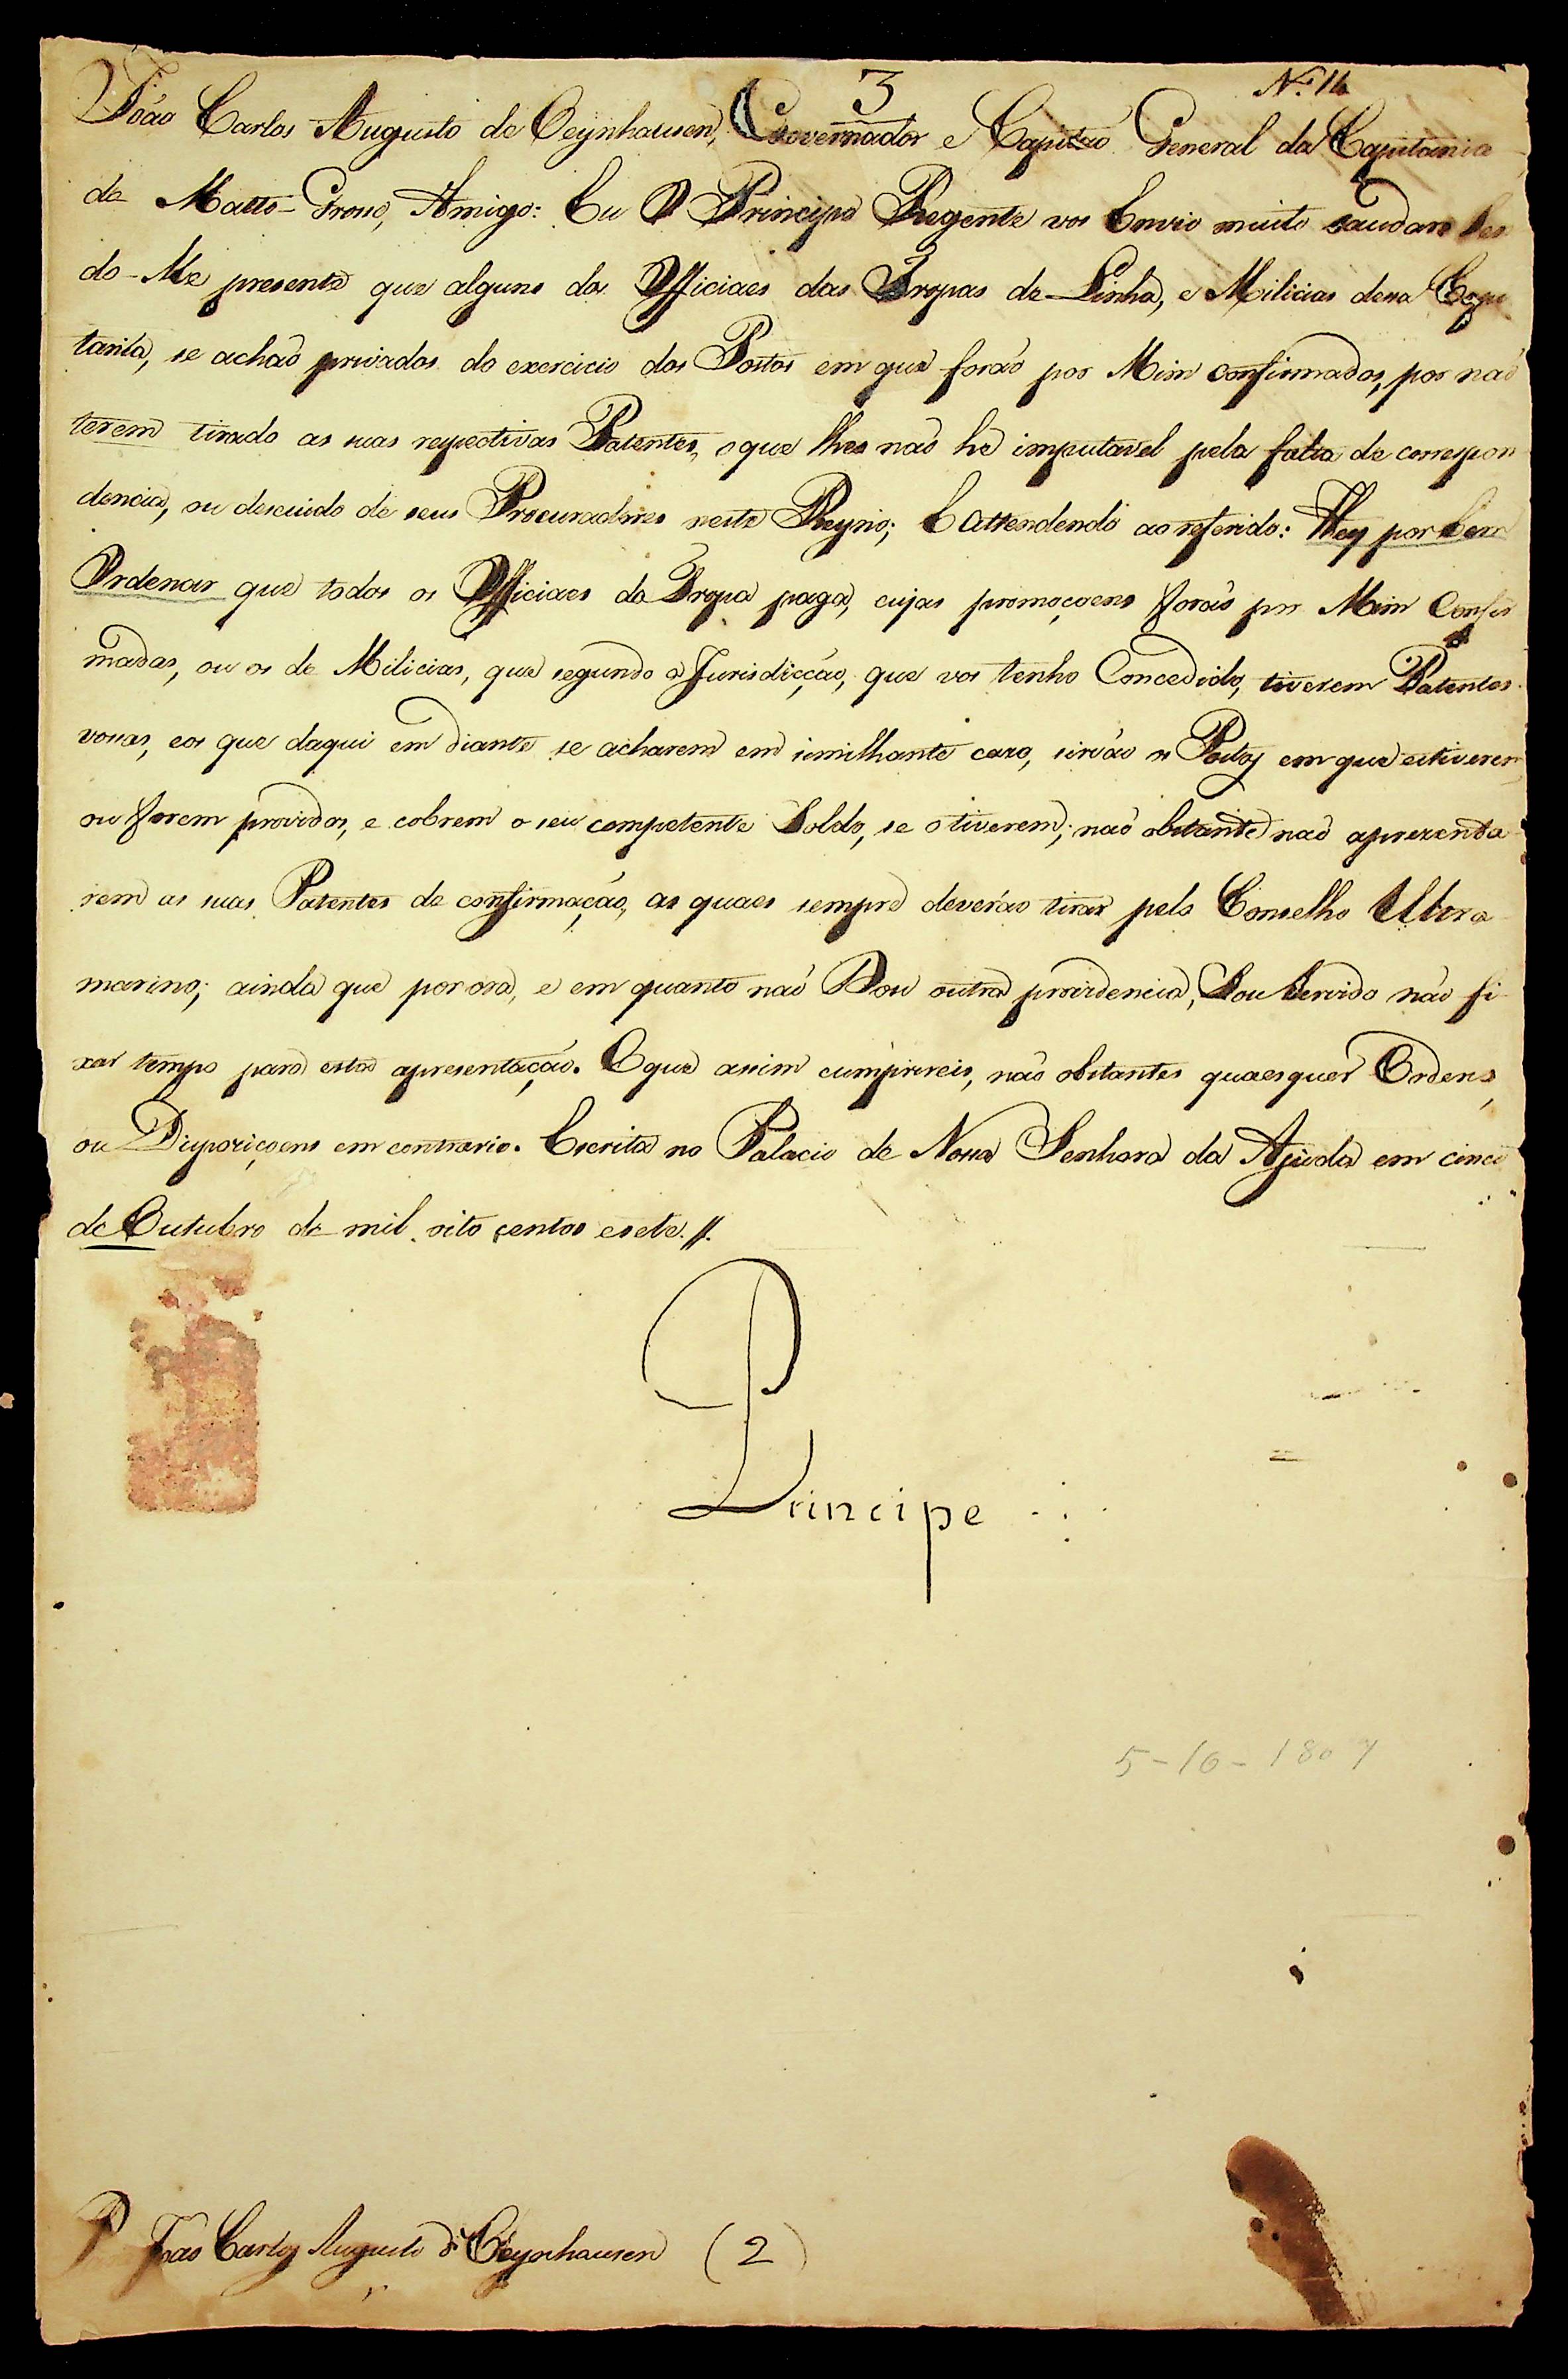 3
Nº 14
João Carlos Augusto de Oeynhausen, Governador e Capitão General da Capitania
de Matto-Grosso, Amigo: Eu O Principe Regente vos Envio muito saudar. Sen
do-Me presente que alguns dos Officiaes das Tropas de Linha, e Milicias dessa Capi
tania, se achaõ privados do exercicio dos Postos em que foraõ por Mim confirmados, por naõ
terem tirado as suas respectivas Patentes, o que lhes naõ he imputavel pela falta de correspon
dencia, ou descuido de seus Procuradores neste Reyno; E attendendo ao referido: Hey por bem
Ordenar que todos os Officiaes da Tropa paga, cujas promoçoens foraõ por Mim Confir
madas, ou os de Milicias, que segundo a Jurisdicção, que vos tenho Concedido, tiverem Patentes
vossas, e os que daqui em diante se acharem em similhante cazo, sirvão os Postos em que estiverem
ou forem providos, e cobrem o seu competente Soldo, se o tiverem; naõ obstante naõ aprezenta
rem as suas Patentes de confirmação, as quaes sempre deverão tirar pelo Conselho Ultra
marino; ainda que por ora, e em quanto naõ Dou outra providencia, Sou Servido não fi
xar tempo para esta apresentação. O que assim cumprireis, não obstantes quaesquer Ordens,
ou Dispoziçoens em contrario. Escrita no Palacio de Nossa Senhora da Ajuda em cinco
de Outubro de mil oito centos e sete.//.
Principe
5-10-1807
P João Carlos Augusto d'Oeynhausen (2)